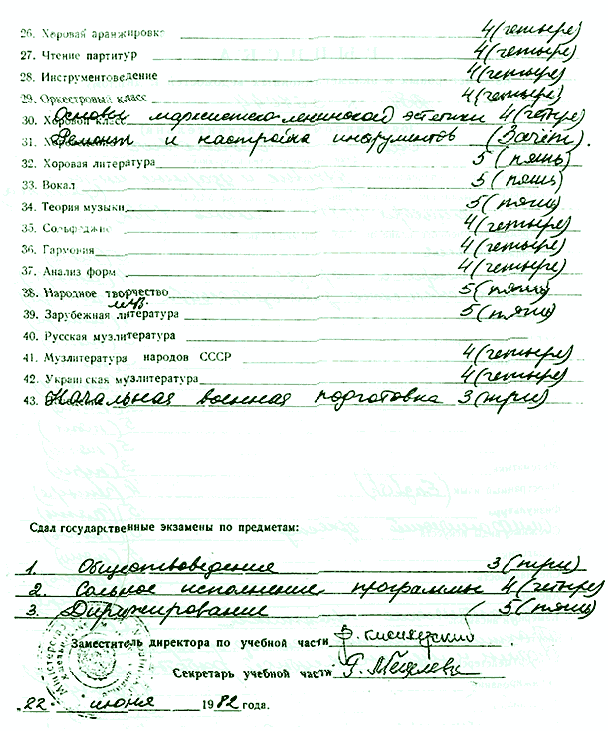 26. Хоровая аранжировка 4 (четыре)
27. Чтение партитур 4 (четыре)
28. Инструментоведение 4 (четыре)
29. Оркестровый класс 4 (четыре)
30. Хоровой класс Основы марксистско-ленинской эстетики 4 (четыре)
31. Ремонт и настройка инструментов (Зачёт).
32. Хоровая литература 5 (пять)
33. Вокал 5 (пять)
34. Теория музыки 5 (пять)
35. Сольфеджио 4 (четыре)
36. Гармония 4 (четыре)
37. Анализ форм 4 (четыре)
38. Народное творчество 5 (пять)
39. Зарубежная муз. литература 5 (пять)
40. Русская музлитература
41. Музлитература народов СССР 4 (четыре)
42. Украинская музлитература 4 (четыре)
43. Начальная военная подготовка 3 (три)
Сдал государственные экзамены по предметам:
1. Обществоведение 3 (три)
2. Сольное исполнение программы 4 (четыре)
3. Дирижирование 5 (пять)
Заместитель директора по учебной части
Секретарь учебной части
22 июня 1982 года.